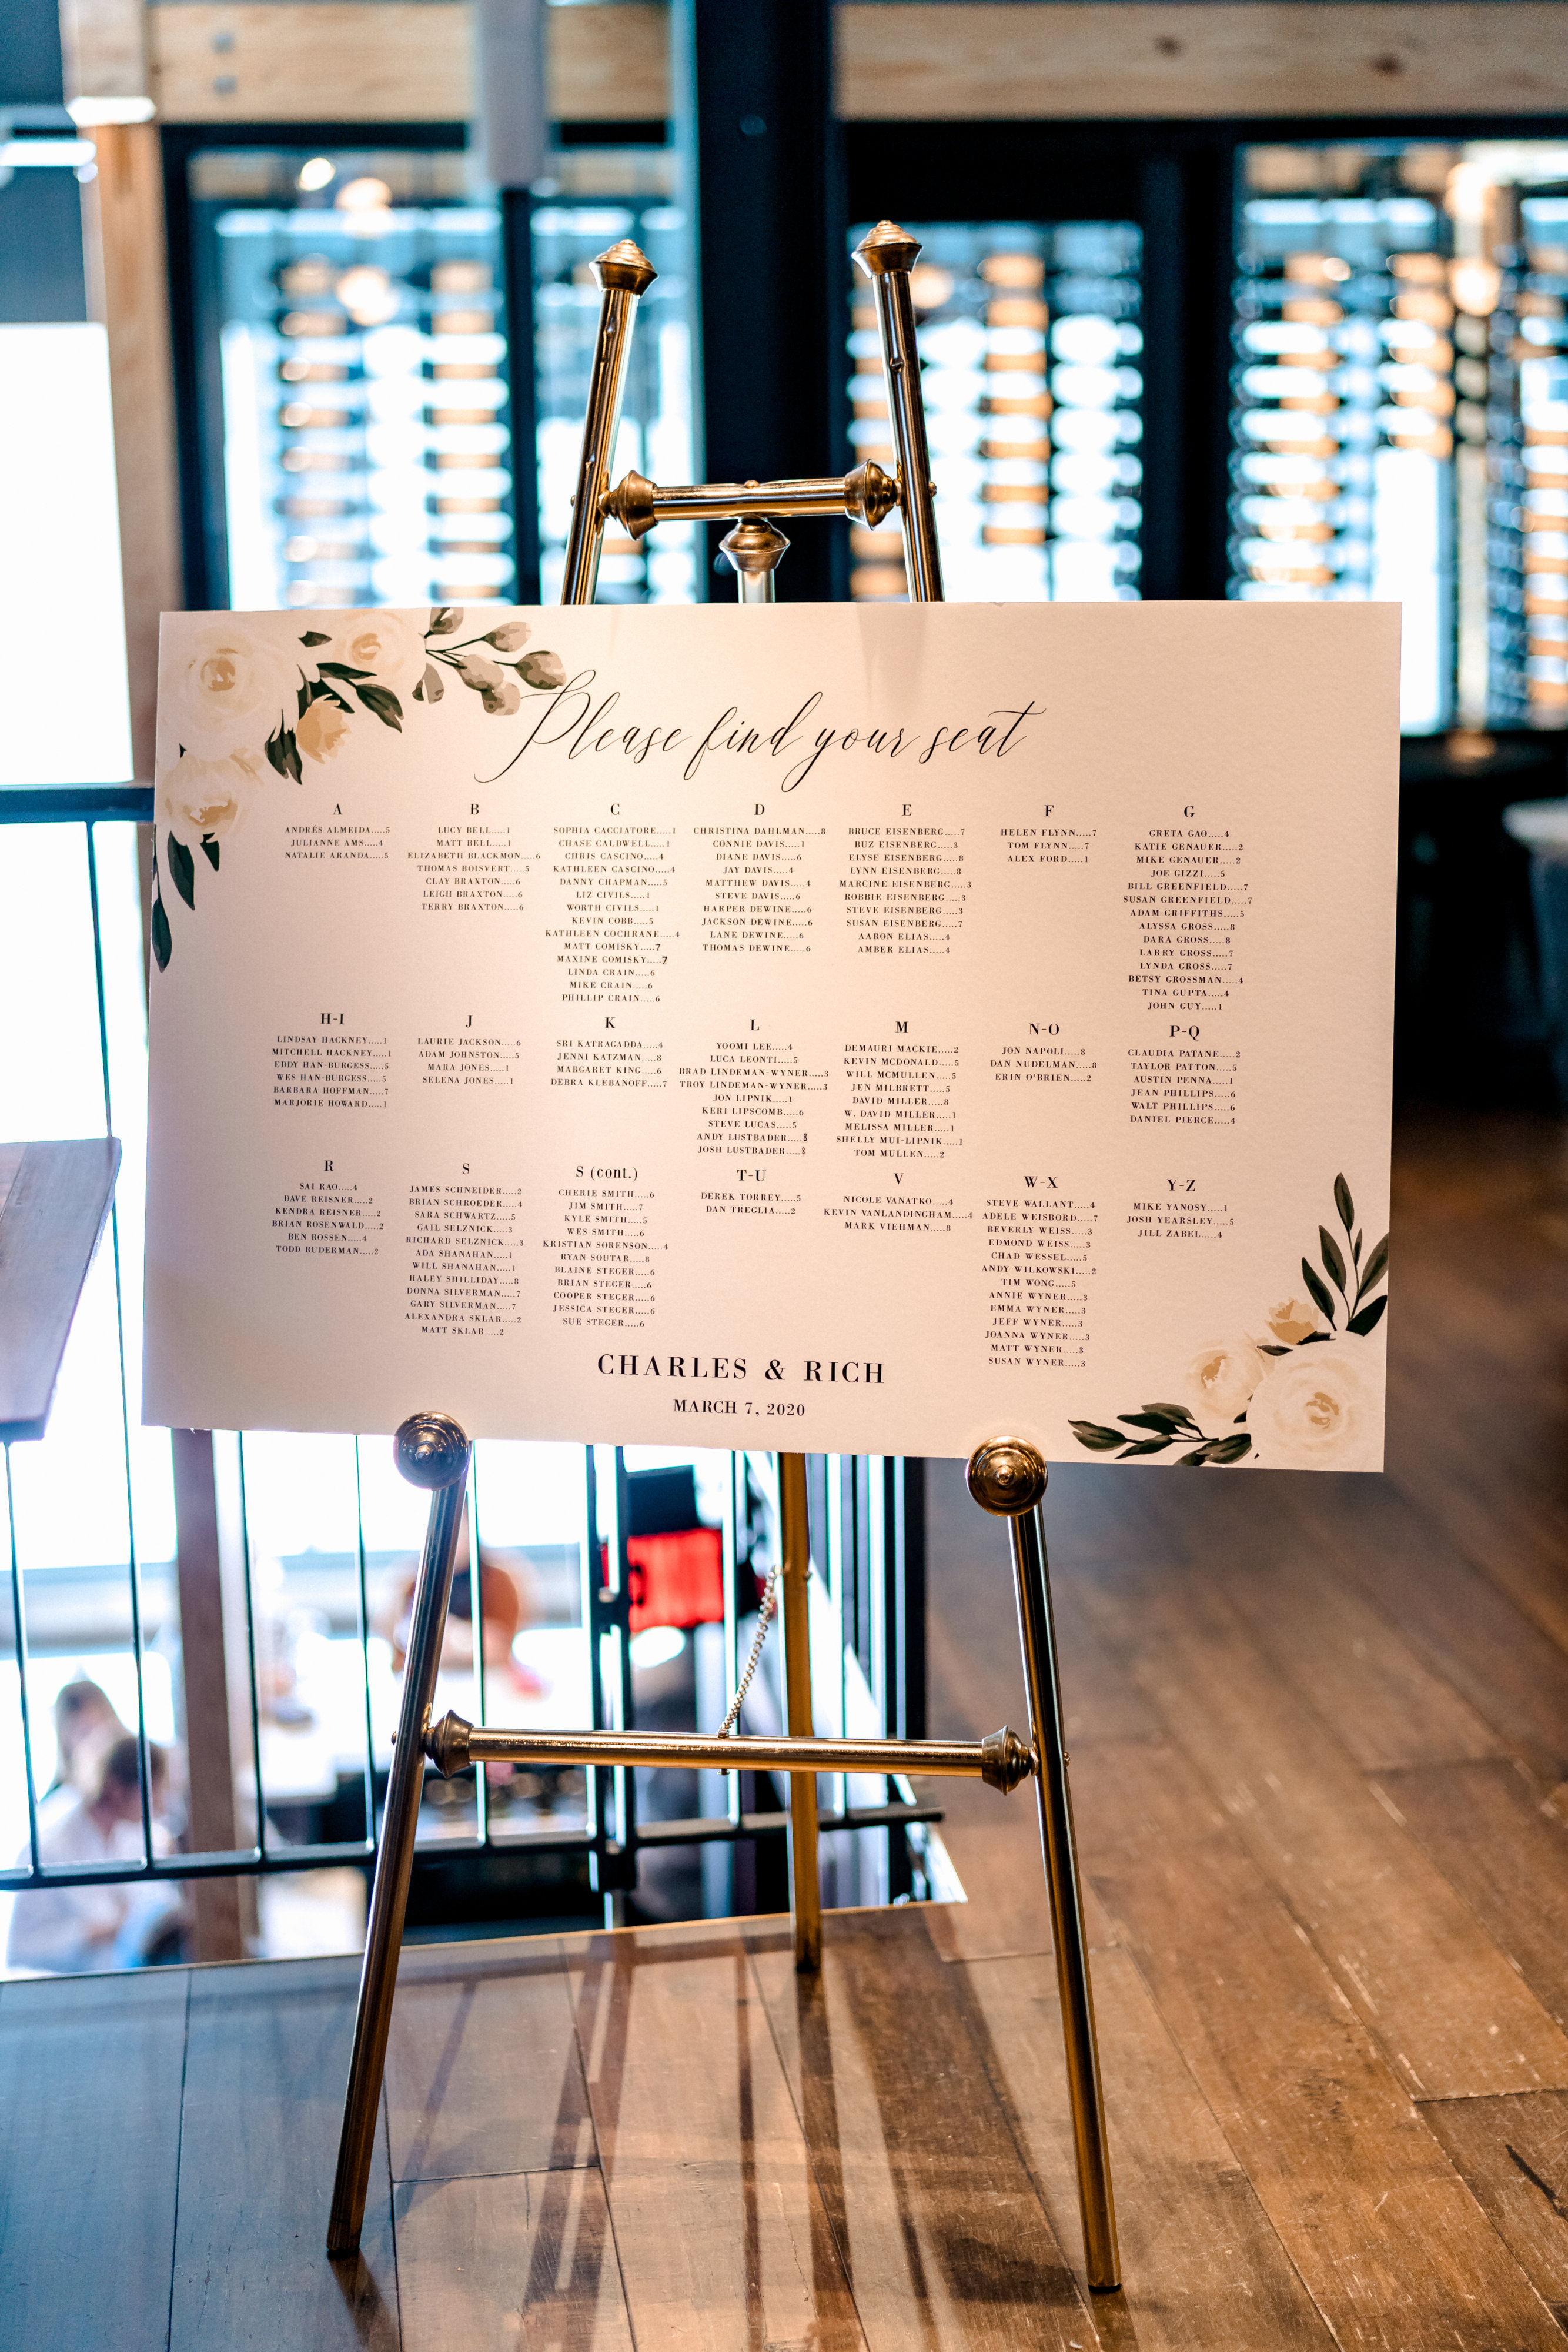 Please find your seat
A
ANDRÉS ALMEIDA.....5
JULIANNE AMS.....4
NATALIE ARANDA.....5
B
LUCY BELL.....1
MATT BELL.....1
ELIZABETH BLACKMON.....6
THOMAS BOISVERT.....5
CLAY BRAXTON.....6
LEIGH BRAXTON.....6
TERRY BRAXTON.....6
C
SOPHIA CACCIATORE.....1
CHASE CALDWELL.....1
CHRIS CASCINO.....4
KATHLEEN CASCINO.....4
DANNY CHAPMAN.....5
LIZ CIVILS.....1
WORTH CIVILS.....1
KEVIN COBB.....5
KATHLEEN COCHRANE.....4
MATT COMISKY.....7
MAXINE COMISKY.....7
LINDA CRAIN.....6
MIKE CRAIN.....6
PHILLIP CRAIN.....6
D
CHRISTINA DAHLMAN.....8
CONNIE DAVIS.....1
DIANE DAVIS.....6
JAY DAVIS.....4
MATTHEW DAVIS.....4
STEVE DAVIS.....6
HARPER DEWINE.....6
JACKSON DEWINE.....6
LANE DEWINE.....6
THOMAS DEWINE.....6
E
BRUCE EISENBERG.....7
BUZ EISENBERG.....3
ELYSE EISENBERG.....8
LYNN EISENBERG.....8
MARCINE EISENBERG.....3
ROBBIE EISENBERG.....3
STEVE EISENBERG.....3
SUSAN EISENBERG.....7
AARON ELIAS.....4
AMBER ELIAS.....4
F
HELEN FLYNN.....7
TOM FLYNN.....7
ALEX FORD.....1
G
GRETA GAO.....4
KATIE GENAUER.....2
MIKE GENAUER.....2
JOE GIZZI.....5
BILL GREENFIELD.....7
SUSAN GREENFIELD.....7
ADAM GRIFFITHS.....5
ALYSSA GROSS.....8
DARA GROSS.....8
LARRY GROSS.....7
LYNDA GROSS.....7
BETSY GROSSMAN.....4
TINA GUPTA.....4
JOHN GUY.....1
H-I
LINDSAY HACKNEY.....1
MITCHELL HACKNEY.....1
EDDY HAN-BURGESS.....5
WES HAN-BURGESS.....5
BARBARA HOFFMAN.....7
MARJORIE HOWARD.....1
J
LAURIE JACKSON.....6
ADAM JOHNSTON.....5
MARA JONES.....1
SELENA JONES.....1
K
SRI KATRAGADDA.....4
JENNI KATZMAN.....8
MARGARET KING.....6
DEBRA KLEBANOFF.....7
L
YOOMI LEE.....4
LUCA LEONTI.....5
BRAD LINDEMAN-WYNER.....3
TROY LINDEMAN-WYNER.....3
JON LIPNIK.....1
KERI LIPSCOMB.....6
STEVE LUCAS.....5
ANDY LUSTBADER.....8
JOSH LUSTBADER.....8
M
DEMAURI MACKIE.....2
KEVIN MCDONALD.....5
WILL MCMULLEN.....5
JEN MILBRETT.....5
DAVID MILLER.....8
W. DAVID MILLER.....1
MELISSA MILLER.....1
SHELLY MUI-LIPNIK.....1
TOM MULLEN.....2
N-O
JON NAPOLI.....8
DAN NUDELMAN.....8
ERIN O'BRIEN.....2
P-Q
CLAUDIA PATANE.....2
TAYLOR PATTON.....5
AUSTIN PENNA.....1
JEAN PHILLIPS.....6
WALT PHILLIPS.....6
DANIEL PIERCE.....4
R
SAI RAO.....4
DAVE REISNER.....2
KENDRA REISNER.....2
BRIAN ROSENWALD.....2
BEN ROSSEN.....4
TODD RUDERMAN.....2
S
JAMES SCHNEIDER.....2
BRIAN SCHROEDER.....4
SARA SCHWARTZ.....5
GAIL SELZNICK.....3
RICHARD SELZNICK.....3
ADA SHANAHAN.....1
WILL SHANAHAN.....1
HALEY SHILLIDAY.....8
DONNA SILVERMAN.....7
GARY SILVERMAN.....7
ALEXANDRA SKLAR.....2
MATT SKLAR.....2
S (cont.)
CHERIE SMITH.....6
JIM SMITH.....7
KYLE SMITH.....5
WES SMITH.....6
KRISTIAN SORENSON.....4
RYAN SOUTAR.....8
BLAINE STEGER.....6
BRIAN STEGER.....6
COOPER STEGER.....6
JESSICA STEGER.....6
SUE STEGER.....6
T-U
DEREK TORREY.....5
DAN TREGLIA.....2
V
NICOLE VANATKO.....4
KEVIN VANLANDINGHAM.....4
MARK VIEHMAN.....8
W-X
STEVE WALLANT.....4
ADELE WEISBORD.....7
BEVERLY WEISS.....3
EDMOND WEISS.....3
CHAD WESSEL.....5
ANDY WILKOWSKI.....2
TIM WONG.....5
ANNIE WYNER.....3
EMMA WYNER.....3
JEFF WYNER.....3
JOANNA WYNER.....3
MATT WYNER.....3
SUSAN WYNER.....3
Y-Z
MIKE YANOSY.....1
JOSH YEARSLEY.....5
JILL ZABEL.....4
CHARLES & RICH
MARCH 7, 2020